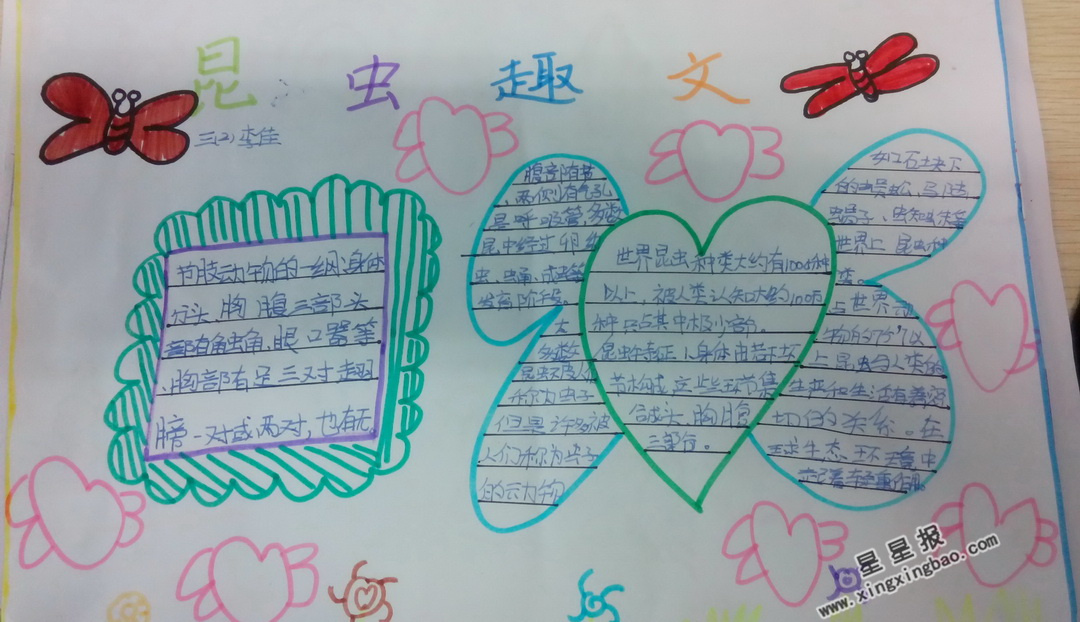 昆虫趣文
三(2)李佳
节肢动物的一纲身体
分头胸腹三部头
部有触角,眼口器等
、胸部有足三对翅
膀一对或两对,也有无。
腹部有节
,两侧有气孔
是呼吸管,多数
昆虫经过卵
虫、蛹、成虫等
发育阶段。
大
多数
昆虫被人
称为虫子
但是许多被
人们称为虫子
的动物
世界昆虫种类大约有1000万种
以上,被人类认知大约100万
种只占其中极少部分。
昆虫身体由若干环
节构成,这些环节集
合成头、胸、腹
三部分。
如石块下
的蜈蚣、马陆
世界上昆虫种
类。
占世界动
物的
上昆虫与人类的
生产和生活有着密
切的关系。在
球生态环境中
起着重作用。
星星报
www.xingxingbao.com